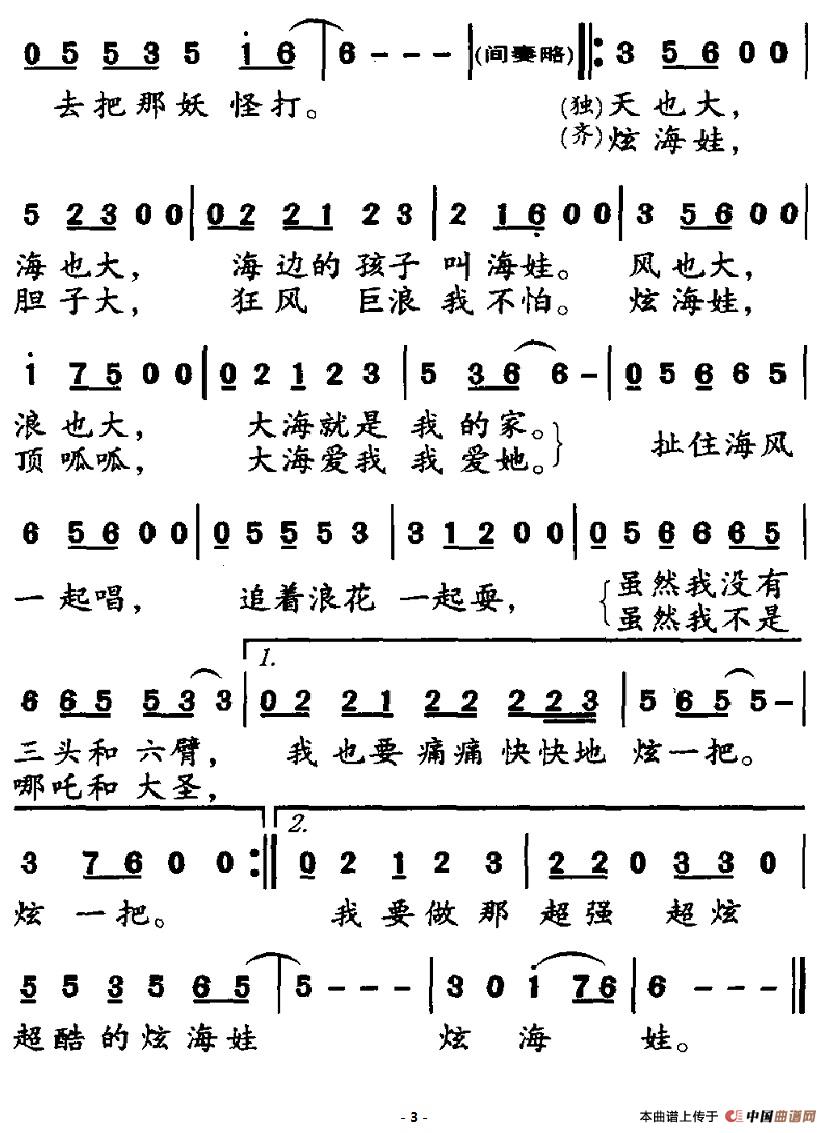 0 5 5 3 5 i 6 6 - - - (间奏略) 3 5 6 0 0
去把那妖 怪打。 (独)天也大,
(齐)炫海娃,
5 2 3 0 0 0 2 2 1 2 3 2 1 6 0 0 3 5 6 0 0
海也大, 海边的孩子 叫海娃。 风也大,
胆子大, 狂风 巨浪我不怕。 炫海娃,
i 7 5 0 0 0 2 1 2 3 5 3 6 6 - 0 5 6 6 5
浪也大, 大海就是 我 的家。
顶呱呱, 大海爱我 我 爱她。 扯住海风
6 5 6 0 0 0 5 5 5 3 3 1 2 0 0 0 5 6 6 6 5
一起唱, 追着浪花 一起耍, 虽然我没有
虽然我不是
1.
6 6 5 5 3 3 0 2 2 1 2 2 2 2 3 5 6 5 5 -
三头和 六臂, 我也要痛痛快快地 炫一把。
哪吒和 大圣,
2.
3 7 6 0 0 0 2 1 2 3 2 2 0 3 3 0
炫 一把。 我要做那 超强 超炫
5 5 3 5 6 5 5 - - - 3 0 i 7 6 6 - - -
超酷的炫海娃 炫 海 娃。
- 3 -
本曲谱上传于 中国曲谱网